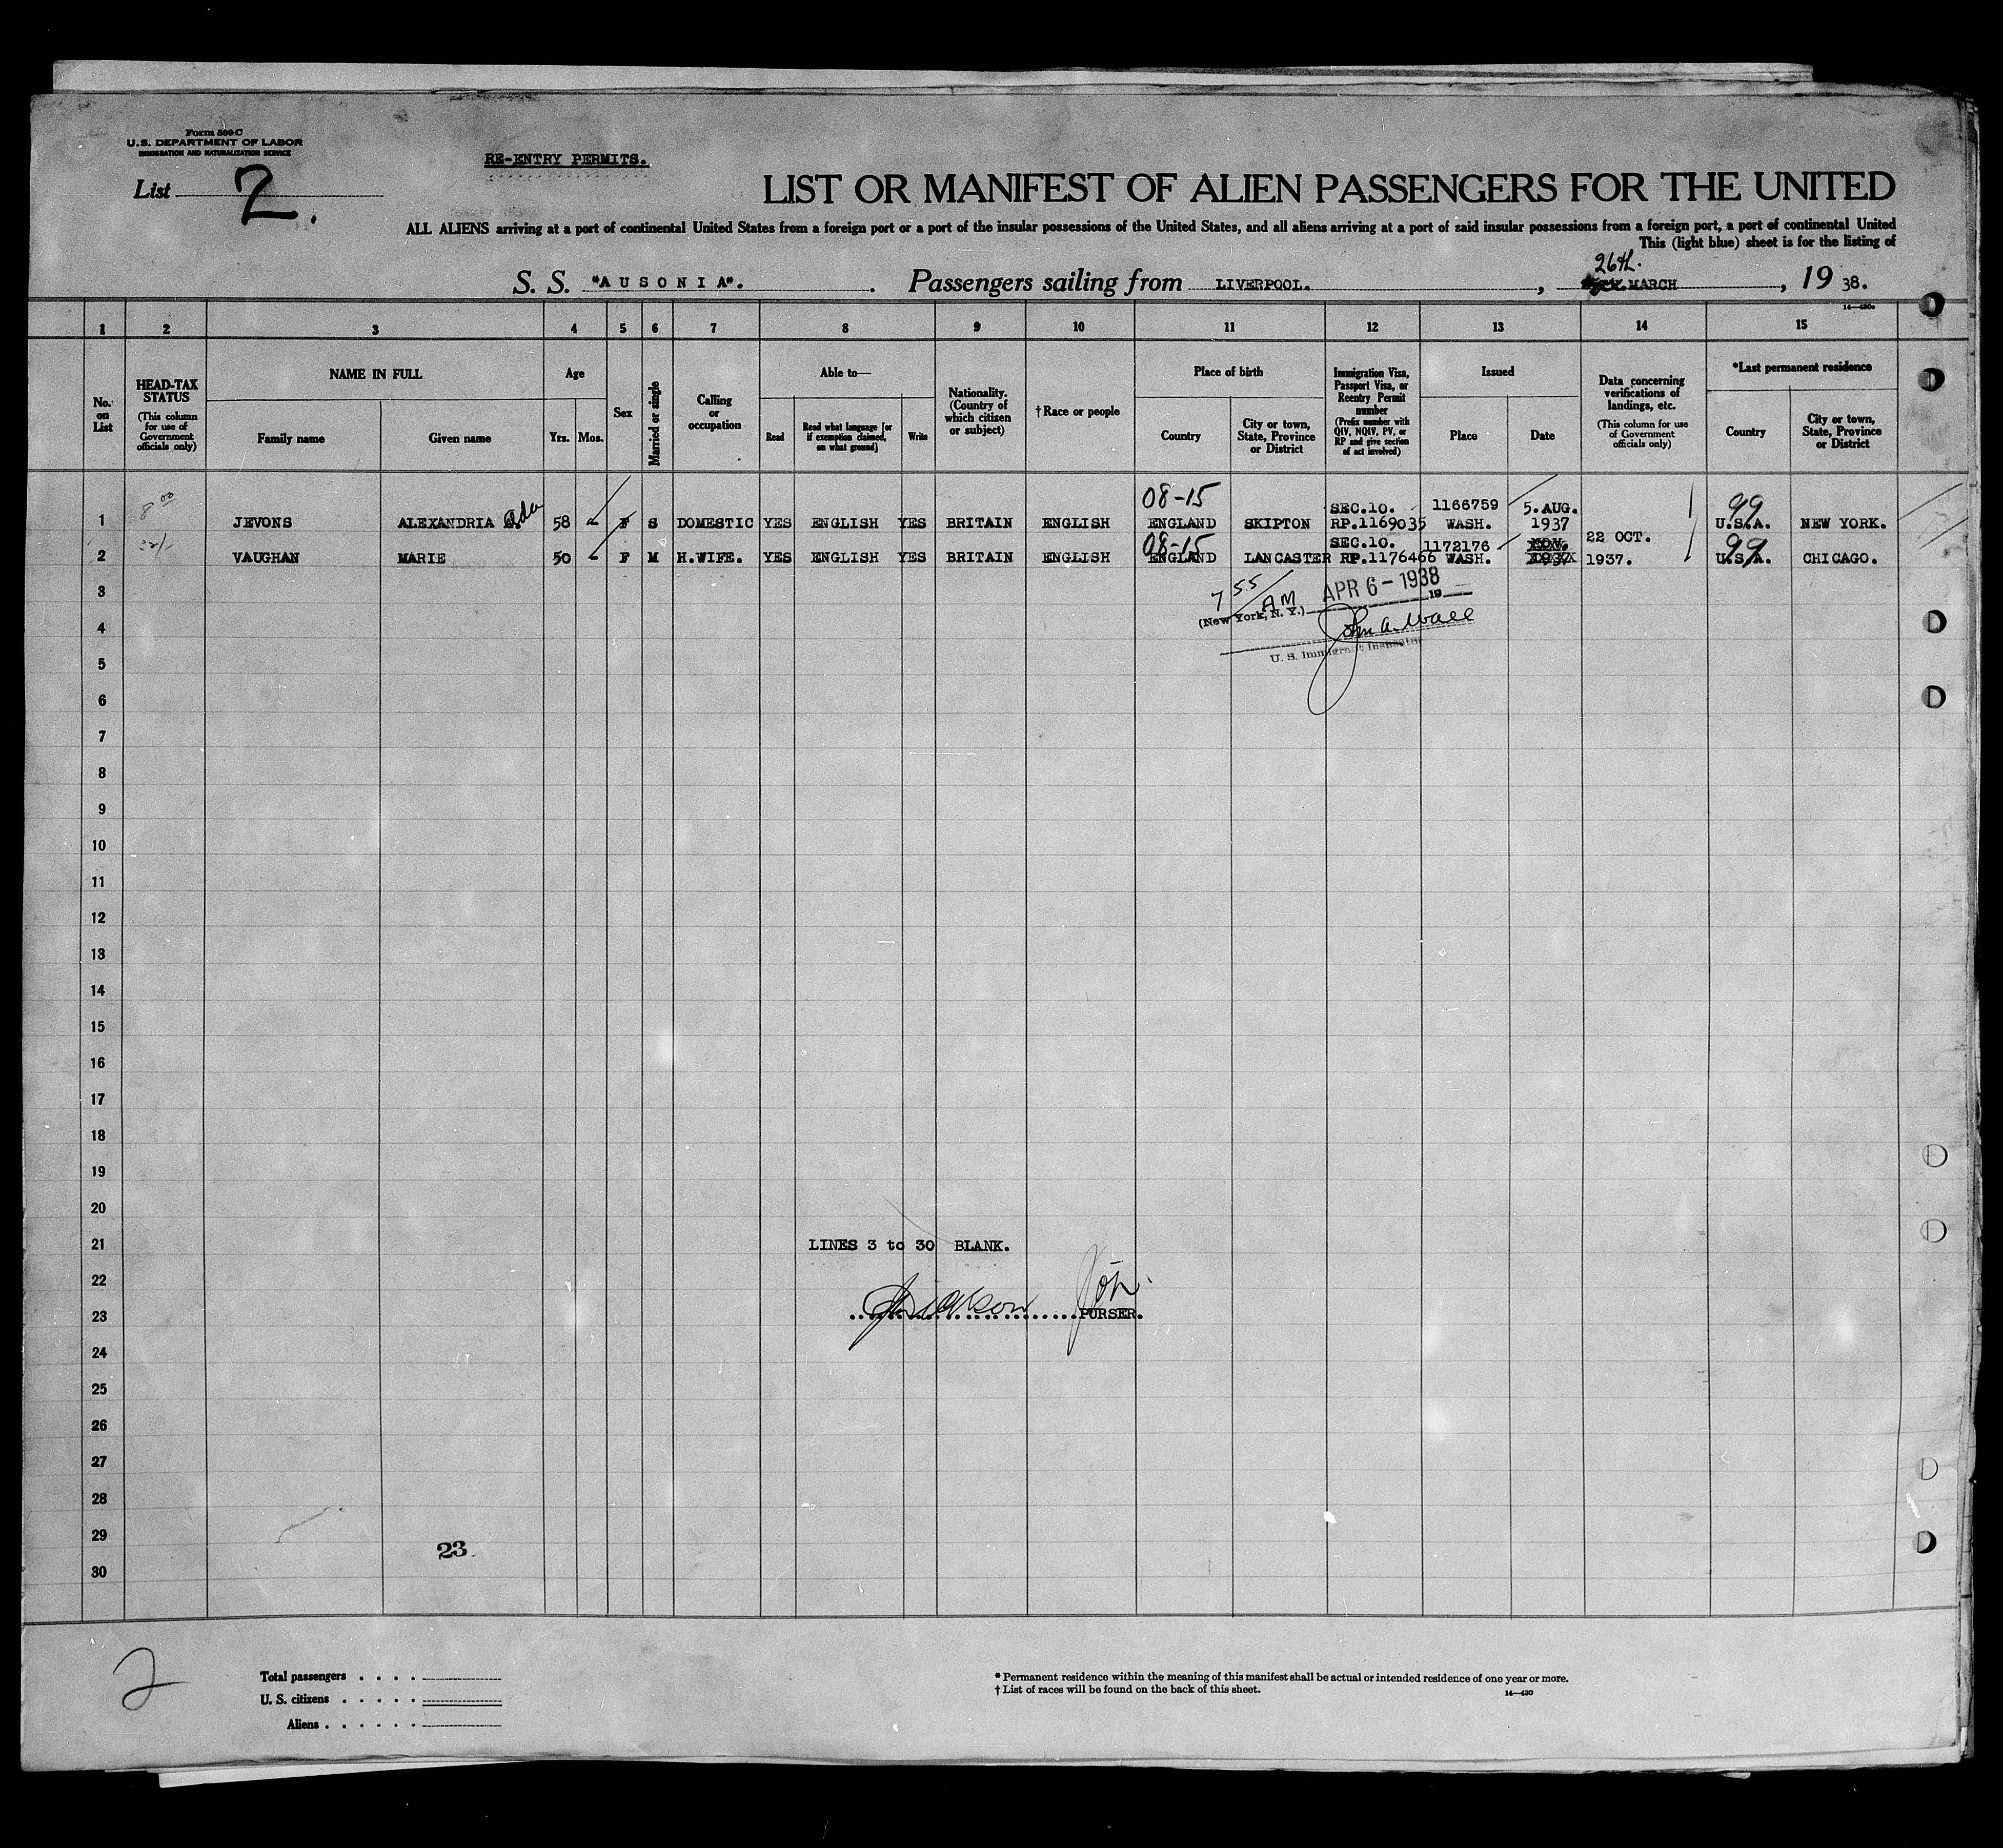 Form 500 C
U.S. DEPARTMENT OF LABOR
IMMIGRATION AND NATURALIZATION SERVICE
RE-ENTRY PERMITS.
List 2.
LIST OR MANIFEST OF ALIEN PASSENGERS FOR THE UNITED
ALL ALIENS arriving at a port of continental United States from a foreign port or a port of the insular possessions of the United States, and all aliens arriving at a port of said insular possessions from a foreign port, a port of continental United
This (light blue) sheet is for the listing of
26th.
S. S. "AUSONIA". Passengers sailing from LIVERPOOL. , MARCH , 19 38.
14—430a
1 2 3 4 5 6 7 8 9 10 11 12 13 14 15
No. on List
HEAD-TAX STATUS
(This column for use of Government officials only)
NAME IN FULL
Family name Given name
Age
Yrs. Mos.
Sex
Married or single
Calling or occupation
Able to—
Read
Read what language [or if exemption claimed, on what ground]
Write
Nationality. (Country of which citizen or subject)
† Race or people
Place of birth
Country
City or town, State, Province or District
Immigration Visa, Passport Visa, or Reentry Permit number
(Prefix number with QIV, NQIV, PV, or RP and give section of act involved)
Issued
Place Date
Data concerning verifications of landings, etc.
(This column for use of Government officials only)
*Last permanent residence
Country
City or town, State, Province or District
8 00 08-15 SEC.10. 1166759 5.AUG. 99
1 JEVONS ALEXANDRIA Ada 58 F S DOMESTIC YES ENGLISH YES BRITAIN ENGLISH ENGLAND SKIPTON RP.1169035 WASH. 1937 U.S.A. NEW YORK.
08-15 SEC.10. 1172176 NOV. 22 OCT. 99
2 VAUGHAN MARIE 50 F M H.WIFE. YES ENGLISH YES BRITAIN ENGLISH ENGLAND LANCASTER RP.1176466 WASH. 1937 1937. U.S.A. CHICAGO.
3
7 55 AM APR 6 - 1938
(New York, N. Y.) 19
4
John A. Wall
U. S. Immigrant Inspector
5
6
7
8
9
10
11
12
13
14
15
16
17
18
19
20
21 LINES 3 to 30 BLANK.
22
23 PURSER.
24
25
26
27
28
29
23
30
2
Total passengers . . . .
U. S. citizens . . . . .
Aliens . . . . . .
* Permanent residence within the meaning of this manifest shall be actual or intended residence of one year or more.
† List of races will be found on the back of this sheet. 14—430